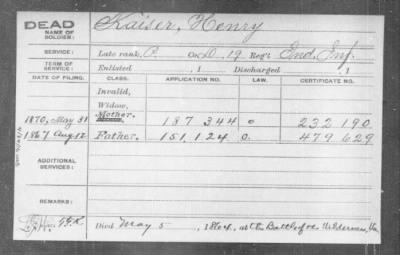 DEAD
NAME OF SOLDIER:
Kaiser, Henry
SERVICE:
Late rank, P. Co. D, 19 Reg't Ind. Inf.
TERM OF SERVICE:
Enlisted , 1 Discharged , 1
DATE OF FILING. CLASS. APPLICATION NO. LAW. CERTIFICATE NO.
Invalid,
Widow,
1870, May 31 Mother. 187 344 232 190
1867 Aug 12 Father. 151,124 479 629
ADDITIONAL SERVICES:
REMARKS:
Died May 5, 1864, at the Battle of the Wilderness, Va.